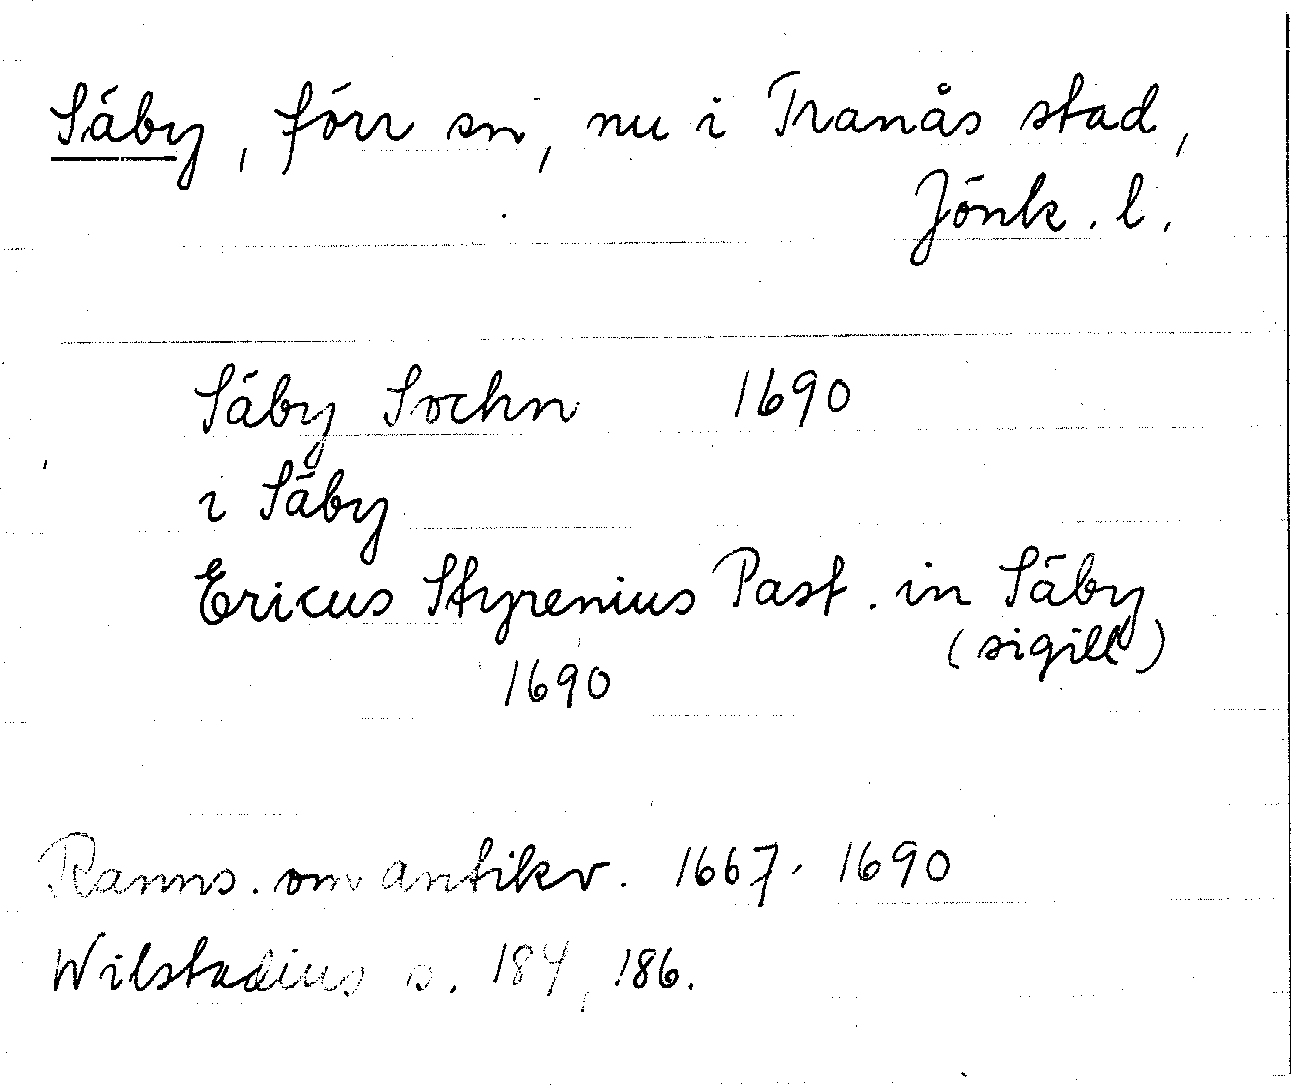 Säby, förr sn, nu i Tranås stad,
Jönk. l.
Säby Sochn 1690
i Säby
Ericus Styrenius Past. in Säby
(sigill)
1690
Ranns. om antikv. 1667-1690
Wilstadius s. 184, 186.